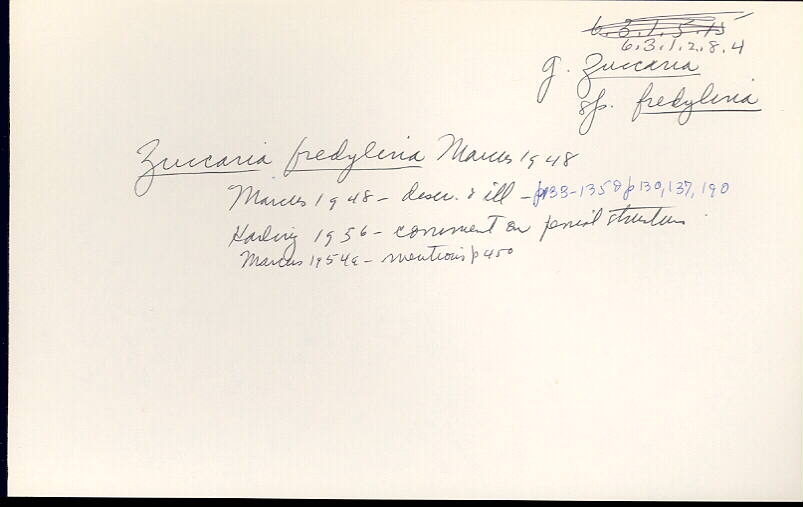 6.3.1.5.15
6.3.1.2.8.4
g. Zuccaria
sp. fredylina
Zuccaria fredylina Marcus 1948
Marcus 1948 - descr. & ill - p133-135 p130, 137, 190
Karling 1956 - comment on penial structure
Marcus 1954a - mentions p450